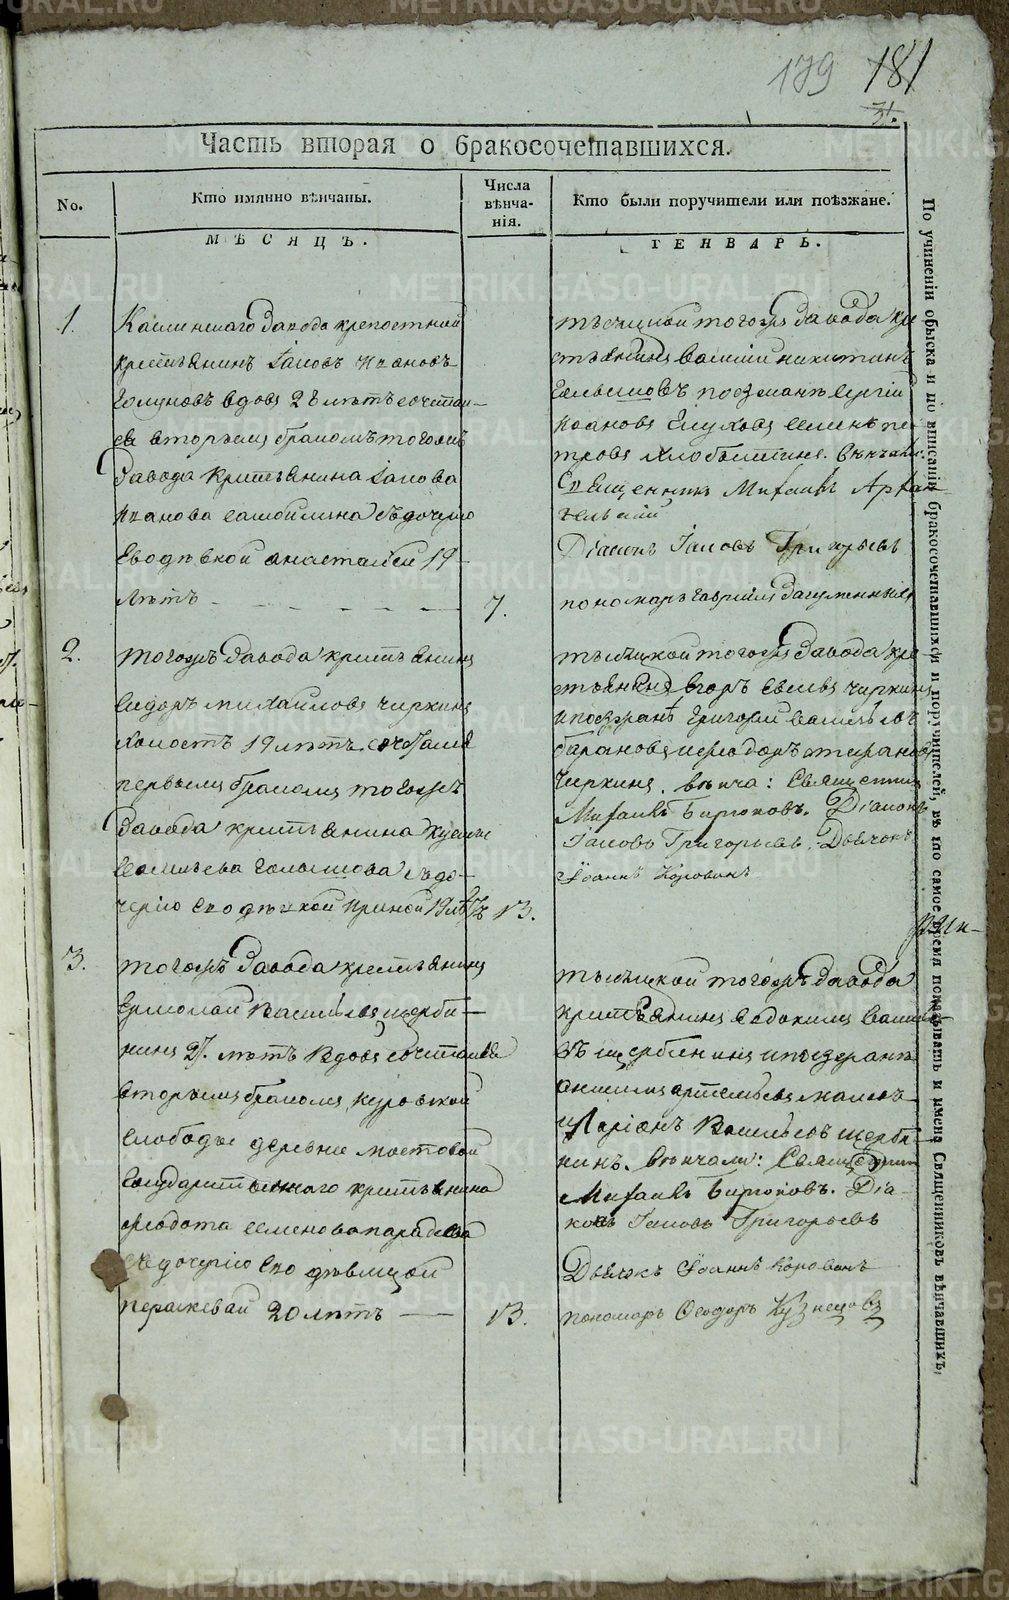 179 181
31.
Часть вторая о бракосочетавшихся.
No.
Кто имянно вѣнчаны.
Числа вѣнча-нія.
Кто были поручители или поѣзжане.
МѢСЯЦЪ.
ГЕНВАРЬ.
1.
Каслинскаго завода крепостной
крестьянинъ Іаковъ Ивановъ
вдовъ 28 лѣтъ сочетал-
ся вторымъ бракомъ тогожъ
завода крестьянина Іакова
Иванова дочерью
Ево дѣвкой Анастасіей 19
лѣтъ
7.
тысяцкой тогожъ завода кре-
стьянинъ Василій Никитинъ
Голышовъ поезжанѣ Сергій
Ивановъ Глуховъ Семенъ Пе-
тровъ Хлобыстинъ. вѣнчали:
Священникъ Михаилъ Архан-
гельскій
Діаконъ Іаковъ Григорьевъ
пономарь Гавріилъ
2.
тогожъ завода крестьянинъ
Сидоръ Михайловъ Чиркинъ
холостъ 19 лѣтъ сочетался
первымъ бракомъ тогожъ
завода крестьянина
Васильева Голышова съ до-
черію ево дѣвкой Ириной 19 лѣтъ
13.
тысяцкой тогожъ завода кре-
стьянинъ Егоръ Савельевъ Чиркинъ
и поезжанѣ Григорей Васильевъ
Барановъ
Чиркинъ. вѣнча: Священникъ
Михаилъ Бирюковъ. Діаконъ
Іаковъ Григорьевъ. Дьячокъ
Іоаннъ Коровинъ
3.
тогожъ завода крестьянинъ
Ермолай Васильевъ Щерби-
нинъ 27. лѣтъ вдовъ сочетался
вторымъ бракомъ
слободы деревни Мостовой
Государственного крестьянина
Федота Семенова
съ дочерію ево дѣвицой
Парасковьей 20 лѣтъ
13.
тысяцкой тогожъ завода
крестьянинъ Евдокимъ Василь-
евъ Щербининъ и поезжанѣ
Иларіонъ Васильевъ Щерби-
нинъ. Вѣнчали: Священникъ
Михаилъ Бирюковъ. Діа-
конъ Іаковъ Григорьевъ
Дьячокъ Іоаннъ Коровинъ
пономарь Ѳеодоръ Кузнецовъ
По учиненіи обыска и по вписаніи бракосочетавшихся и поручителей, въ то самое время показывать и имена Священниковъ вѣнчавшихъ,
METRIKI.GASO-URAL.RU